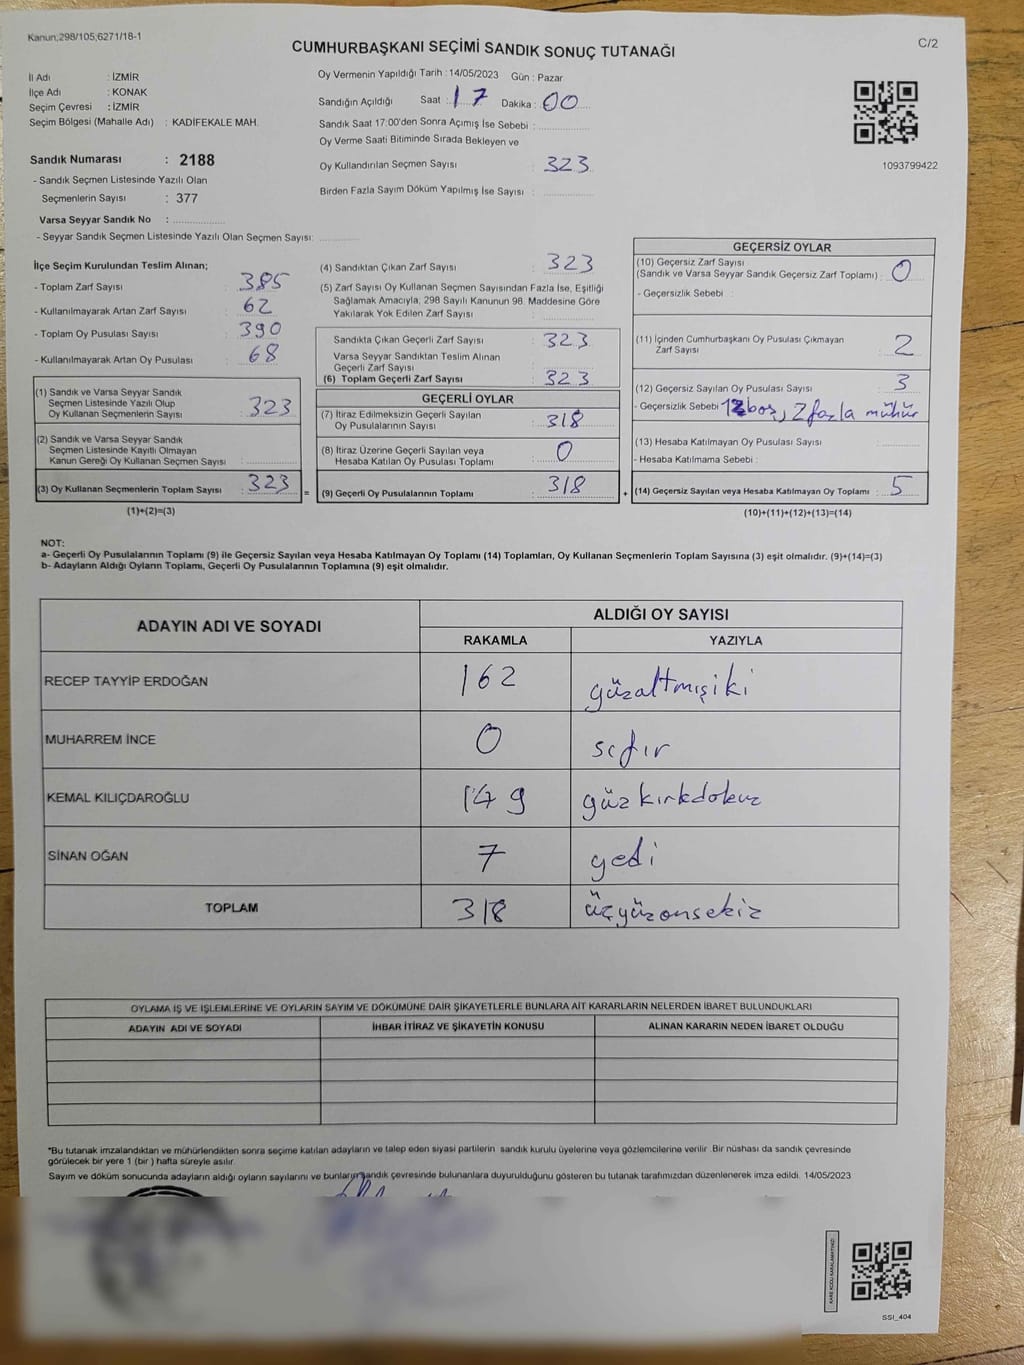 Kanun;298/105;6271/18-1
C/2
CUMHURBAŞKANI SEÇİMİ SANDIK SONUÇ TUTANAĞI
İl Adı : İZMİR
İlçe Adı : KONAK
Seçim Çevresi : İZMİR
Seçim Bölgesi (Mahalle Adı) : KADİFEKALE MAH.
Sandık Numarası : 2188
- Sandık Seçmen Listesinde Yazılı Olan
Seçmenlerin Sayısı : 377
Varsa Seyyar Sandık No : ..............
- Seyyar Sandık Seçmen Listesinde Yazılı Olan Seçmen Sayısı: ..............
Oy Vermenin Yapıldığı Tarih : 14/05/2023 Gün : Pazar
Sandığın Açıldığı Saat : 17 Dakika : 00
Sandık Saat 17:00'den Sonra Açımış İse Sebebi : ..............
Oy Verme Saati Bitiminde Sırada Bekleyen ve
Oy Kullandırılan Seçmen Sayısı : 323
Birden Fazla Sayım Döküm Yapılmış İse Sayısı : ..............
1093799422
İlçe Seçim Kurulundan Teslim Alınan;
- Toplam Zarf Sayısı : 385
- Kullanılmayarak Artan Zarf Sayısı : 62
- Toplam Oy Pusulası Sayısı : 390
- Kullanılmayarak Artan Oy Pusulası : 68
(1) Sandık ve Varsa Seyyar Sandık
Seçmen Listesinde Yazılı Olup
Oy Kullanan Seçmenlerin Sayısı : 323
(2) Sandık ve Varsa Seyyar Sandık
Seçmen Listesinde Kayıtlı Olmayan
Kanun Gereği Oy Kullanan Seçmen Sayısı : ..............
(3) Oy Kullanan Seçmenlerin Toplam Sayısı : 323
(1)+(2)=(3)
(4) Sandıktan Çıkan Zarf Sayısı : 323
(5) Zarf Sayısı Oy Kullanan Seçmen Sayısından Fazla İse, Eşitliği
Sağlamak Amacıyla, 298 Sayılı Kanunun 98. Maddesine Göre
Yakılarak Yok Edilen Zarf Sayısı : ..............
Sandıkta Çıkan Geçerli Zarf Sayısı : 323
Varsa Seyyar Sandıktan Teslim Alınan
Geçerli Zarf Sayısı : ..............
(6) Toplam Geçerli Zarf Sayısı : 323
GEÇERLİ OYLAR
(7) İtiraz Edilmeksizin Geçerli Sayılan
Oy Pusulalarının Sayısı : 318
(8) İtiraz Üzerine Geçerli Sayılan veya
Hesaba Katılan Oy Pusulası Toplamı : 0
= (9) Geçerli Oy Pusulalarının Toplamı : 318
GEÇERSİZ OYLAR
(10) Geçersiz Zarf Sayısı
(Sandık ve Varsa Seyyar Sandık Geçersiz Zarf Toplamı) : 0
- Geçersizlik Sebebi :
(11) İçinden Cumhurbaşkanı Oy Pusulası Çıkmayan
Zarf Sayısı : 2
(12) Geçersiz Sayılan Oy Pusulası Sayısı : 3
- Geçersizlik Sebebi : 1 boş, 2 fazla mühür
(13) Hesaba Katılmayan Oy Pusulası Sayısı : ..............
- Hesaba Katılmama Sebebi :
+ (14) Geçersiz Sayılan veya Hesaba Katılmayan Oy Toplamı : 5
(10)+(11)+(12)+(13)=(14)
NOT:
a- Geçerli Oy Pusulalarının Toplamı (9) ile Geçersiz Sayılan veya Hesaba Katılmayan Oy Toplamı (14) Toplamları, Oy Kullanan Seçmenlerin Toplam Sayısına (3) eşit olmalıdır. (9)+(14)=(3)
b- Adayların Aldığı Oyların Toplamı, Geçerli Oy Pusulalarının Toplamına (9) eşit olmalıdır.
ADAYIN ADI VE SOYADI
ALDIĞI OY SAYISI
RAKAMLA YAZIYLA
RECEP TAYYİP ERDOĞAN 162 yüzaltmışiki
MUHARREM İNCE 0 sıfır
KEMAL KILIÇDAROĞLU 149 yüzkırkdokuz
SİNAN OĞAN 7 yedi
TOPLAM 318 üçyüzonsekiz
OYLAMA İŞ VE İŞLEMLERİNE VE OYLARIN SAYIM VE DÖKÜMÜNE DAİR ŞİKAYETLERLE BUNLARA AİT KARARLARIN NELERDEN İBARET BULUNDUKLARI
ADAYIN ADI VE SOYADI İHBAR İTİRAZ VE ŞİKAYETİN KONUSU ALINAN KARARIN NEDEN İBARET OLDUĞU
*Bu tutanak imzalandıktan ve mühürlendikten sonra seçime katılan adayların ve talep eden siyasi partilerin sandık kurulu üyelerine veya gözlemcilerine verilir. Bir nüshası da sandık çevresinde
görülecek bir yere 1 (bir ) hafta süreyle asılır.
Sayım ve döküm sonucunda adayların aldığı oyların sayılarını ve bunların sandık çevresinde bulunanlara duyurulduğunu gösteren bu tutanak tarafımızdan düzenlenerek imza edildi. 14/05/2023
KARE KODU KARALAMAYINIZ!
SSİ_404